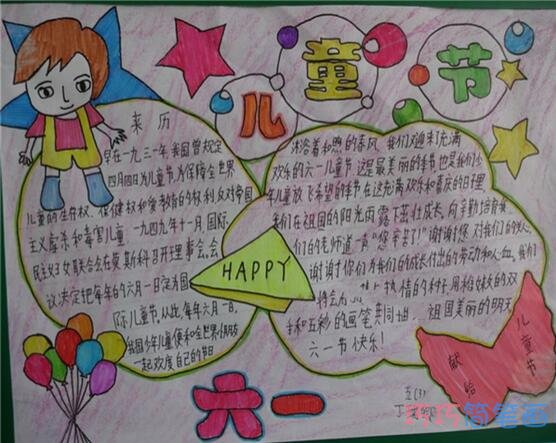 儿童节
来历
早在一九三一年,我国曾规定
四月四日为儿童节,为保障全世界
儿童的生存权、保健权和受教育的权利,反对帝国
主义虐杀和毒害儿童,一九四九年十一月,国际
民主妇女联合会在莫斯科召开理事会,会
议决定把每年的六月一日定为国
际儿童节,从此,每年六月一日,
我国少年儿童便和全世界小朋友
一起欢度自己的节日
沐浴着和煦的春风,我们迎来充满
欢乐的六一儿童节,这是最美丽的季节,也是我们少
年儿童放飞希望的季节,在这充满欢乐和喜庆的日子里
我们在祖国的阳光雨露下茁壮成长,向辛勤培育我
们的老师道一声"您辛苦了!"谢谢您,对我们的
谢谢你们为我们的成长付出的劳动和心血,我们
将会为
热情的种子,用稚嫩的双
手和五彩的画笔共同
祖国美丽的明天
六一节快乐!
HAPPY
六一
献给
儿童节
五(3)
丁
简笔画